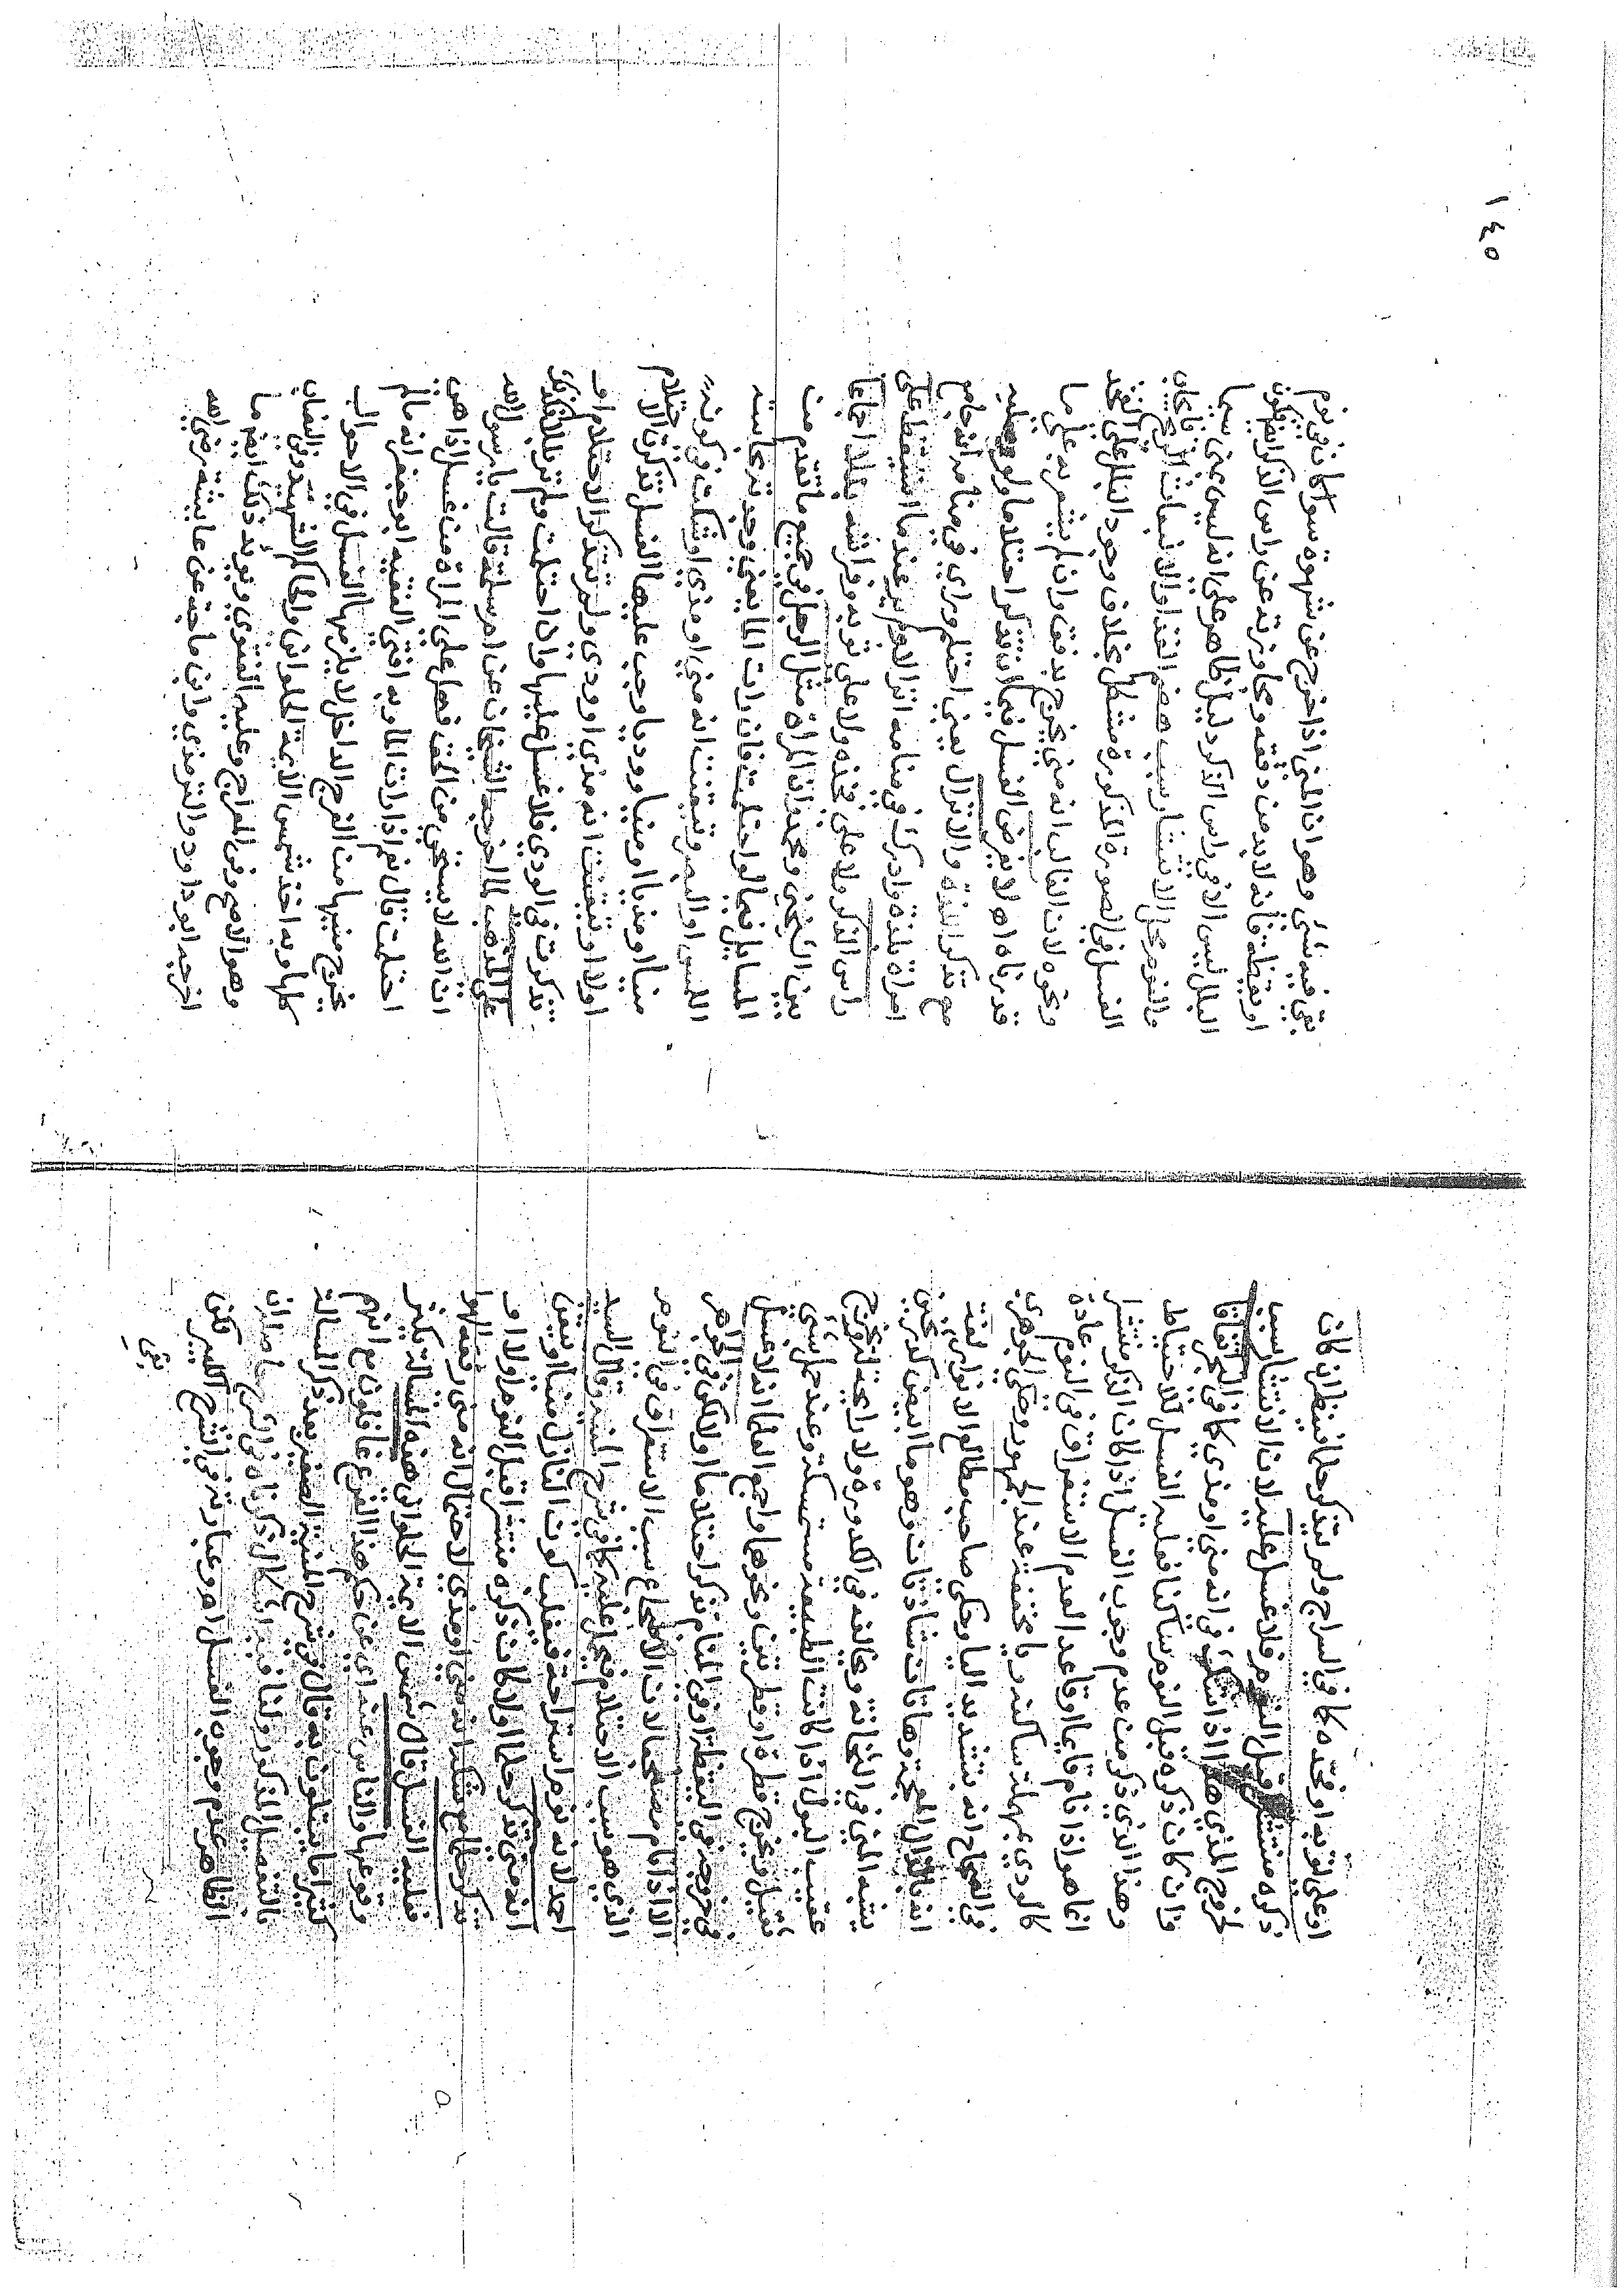 ١٤٥
او على ثوبه او فخذه كما في السراج ولم يتذكر حلما فينظر ان كان
ذكره منتشرا قبل النوم فلا غسل عليه لان الانتشار سبب
لخروج المذي هذا اذا شك في انه مني او مذي كما في البحر اتفاقا
وان كان ذكره قبل النوم ساكنا فعليه الغسل للاحتياط
وهذا الذي ذكر من عدم وجوب الغسل اذا كان الذكر منتشرا
انما هو اذا نام قايما او قاعدا لعدم الاستغراق في النوم عادة
كالودي بمهملة ساكنة وياء مخففة عند الجمهور وحكى الجوهري
في الصحاح انه بتشديد اليا وحكى صاحب مطالع الانوار لغة
انه بالذال المعجمة وهاتان شاذتان وهو ما ابيض كدر ثخين
يشبه المني في الثخانة ويخالفه في الكدورة ولا رايحة له يخرج
عقيب البول اذا كانت الطبيعة مستمسكة وعند حمل شي
ثقيل ويخرج قطرة او قطرتين ونحوها واجمع العلما انه لا غسل
في خروجه في اليقظة او في المنام تذكر احتلاما او لا لكن في الجواهر
الا اذا نام مضطجعا لان الاضطجاع سبب الاستغراق في النوم
الذي هو سبب الاحتلام فيحمل عليه كما في شرح المنية وقال السيد
احمد لانه نوم استراحة فيغلب كون النازل منيا او تيقن
انه مني تذكر حلما او لا كان ذكره منتشرا قبل النوم او لا او
تذكر حلما مع شكه انه مني او مذي لاحتمال انه مني رققه الهوا
فعليه الغسل قال شمس الائمة الحلواني هذه المسئلة يكثر
وقوعها والناس عنه اي عن حكم هذا الفرع غافلون مع انهم
كثيرا ما يبتلون به قال في شرح المنية الصغير بعد ذكر المسالة
بالتفصيل المذكور ولنا فيه اشكال ذكرناه في الشرح حاصله ان
الظاهر عدم وجوب الغسل اهـ وعبارته في الشرح الكبير فان
بقي
بقي فيه شي وهو ان المني اذا خرج عن شهوة سوا كان في نوم
او يقظة فانه لا بد من دفقه وتجاوزه عن راس الذكر ايضا فكون
البلل ليس الا في راس الذكر دليل ظاهر على انه ليس بمني سيما
والنوم محل الانتشار بسبب هضم الغذا وانبعاث الريح فايجاب
الغسل في الصورة المذكورة مشكل بخلاف وجود البلل على الفخذ
ونحوه لان الغالب انه مني يخرج بدفق وان لم يشعر به على ما
قدرناه اهـ لا يفرض الغسل فيما ان تذكر احتلاما ولو
مع تذكر اللذة والانزال يعني احتلم وراى في منامه انه جامع
امراة بلذة وادرك في منامه انزالا ولم ير عند ما استيقظ على
راس الذكر ولا على فخذه ولا على ثوبه وفراشه بللا اجماعا
بين النخعي ومحمد وان المراة مثل الرجل في جميع ما تقدم من
المسايل فيما لو احتلمت فان رات الما يعني وجدته بحاسة
اللمس او البصر وتيقنت انه مني او مذي او شكت في كونه
منيا او مذيا او منيا ووديا وجب عليها الغسل تذكرت الاحتلام
اولا او تيقنت انه مذي او ودي ولم تتذكر الاحتلام او
تذكرت في الودي فلا غسل عليها وان احتلمت ولم تر بللا فكذلك
على المذهب لما اخرجه الشيخان عن ام سلمة قالت يا رسول الله
ان الله لا يستحي من الحق فهل على المراة من غسل اذا هي
احتلمت قال نعم اذا رات الما وبه افتى الفقيه ابو جعفر انه ما لم
يخرج منيها من الفرج الداخل لا يلزمها الغسل في الاحوال
كلها وبه اخذ شمس الائمة الحلواني والحاكم الشهيد وفي
وهو الاصح وفي المعراج وعليه الفتوى ويؤيد ذلك ايضا ما
اخرجه ابو داود والترمذي وابن ماجة عن عايشة رضي الله